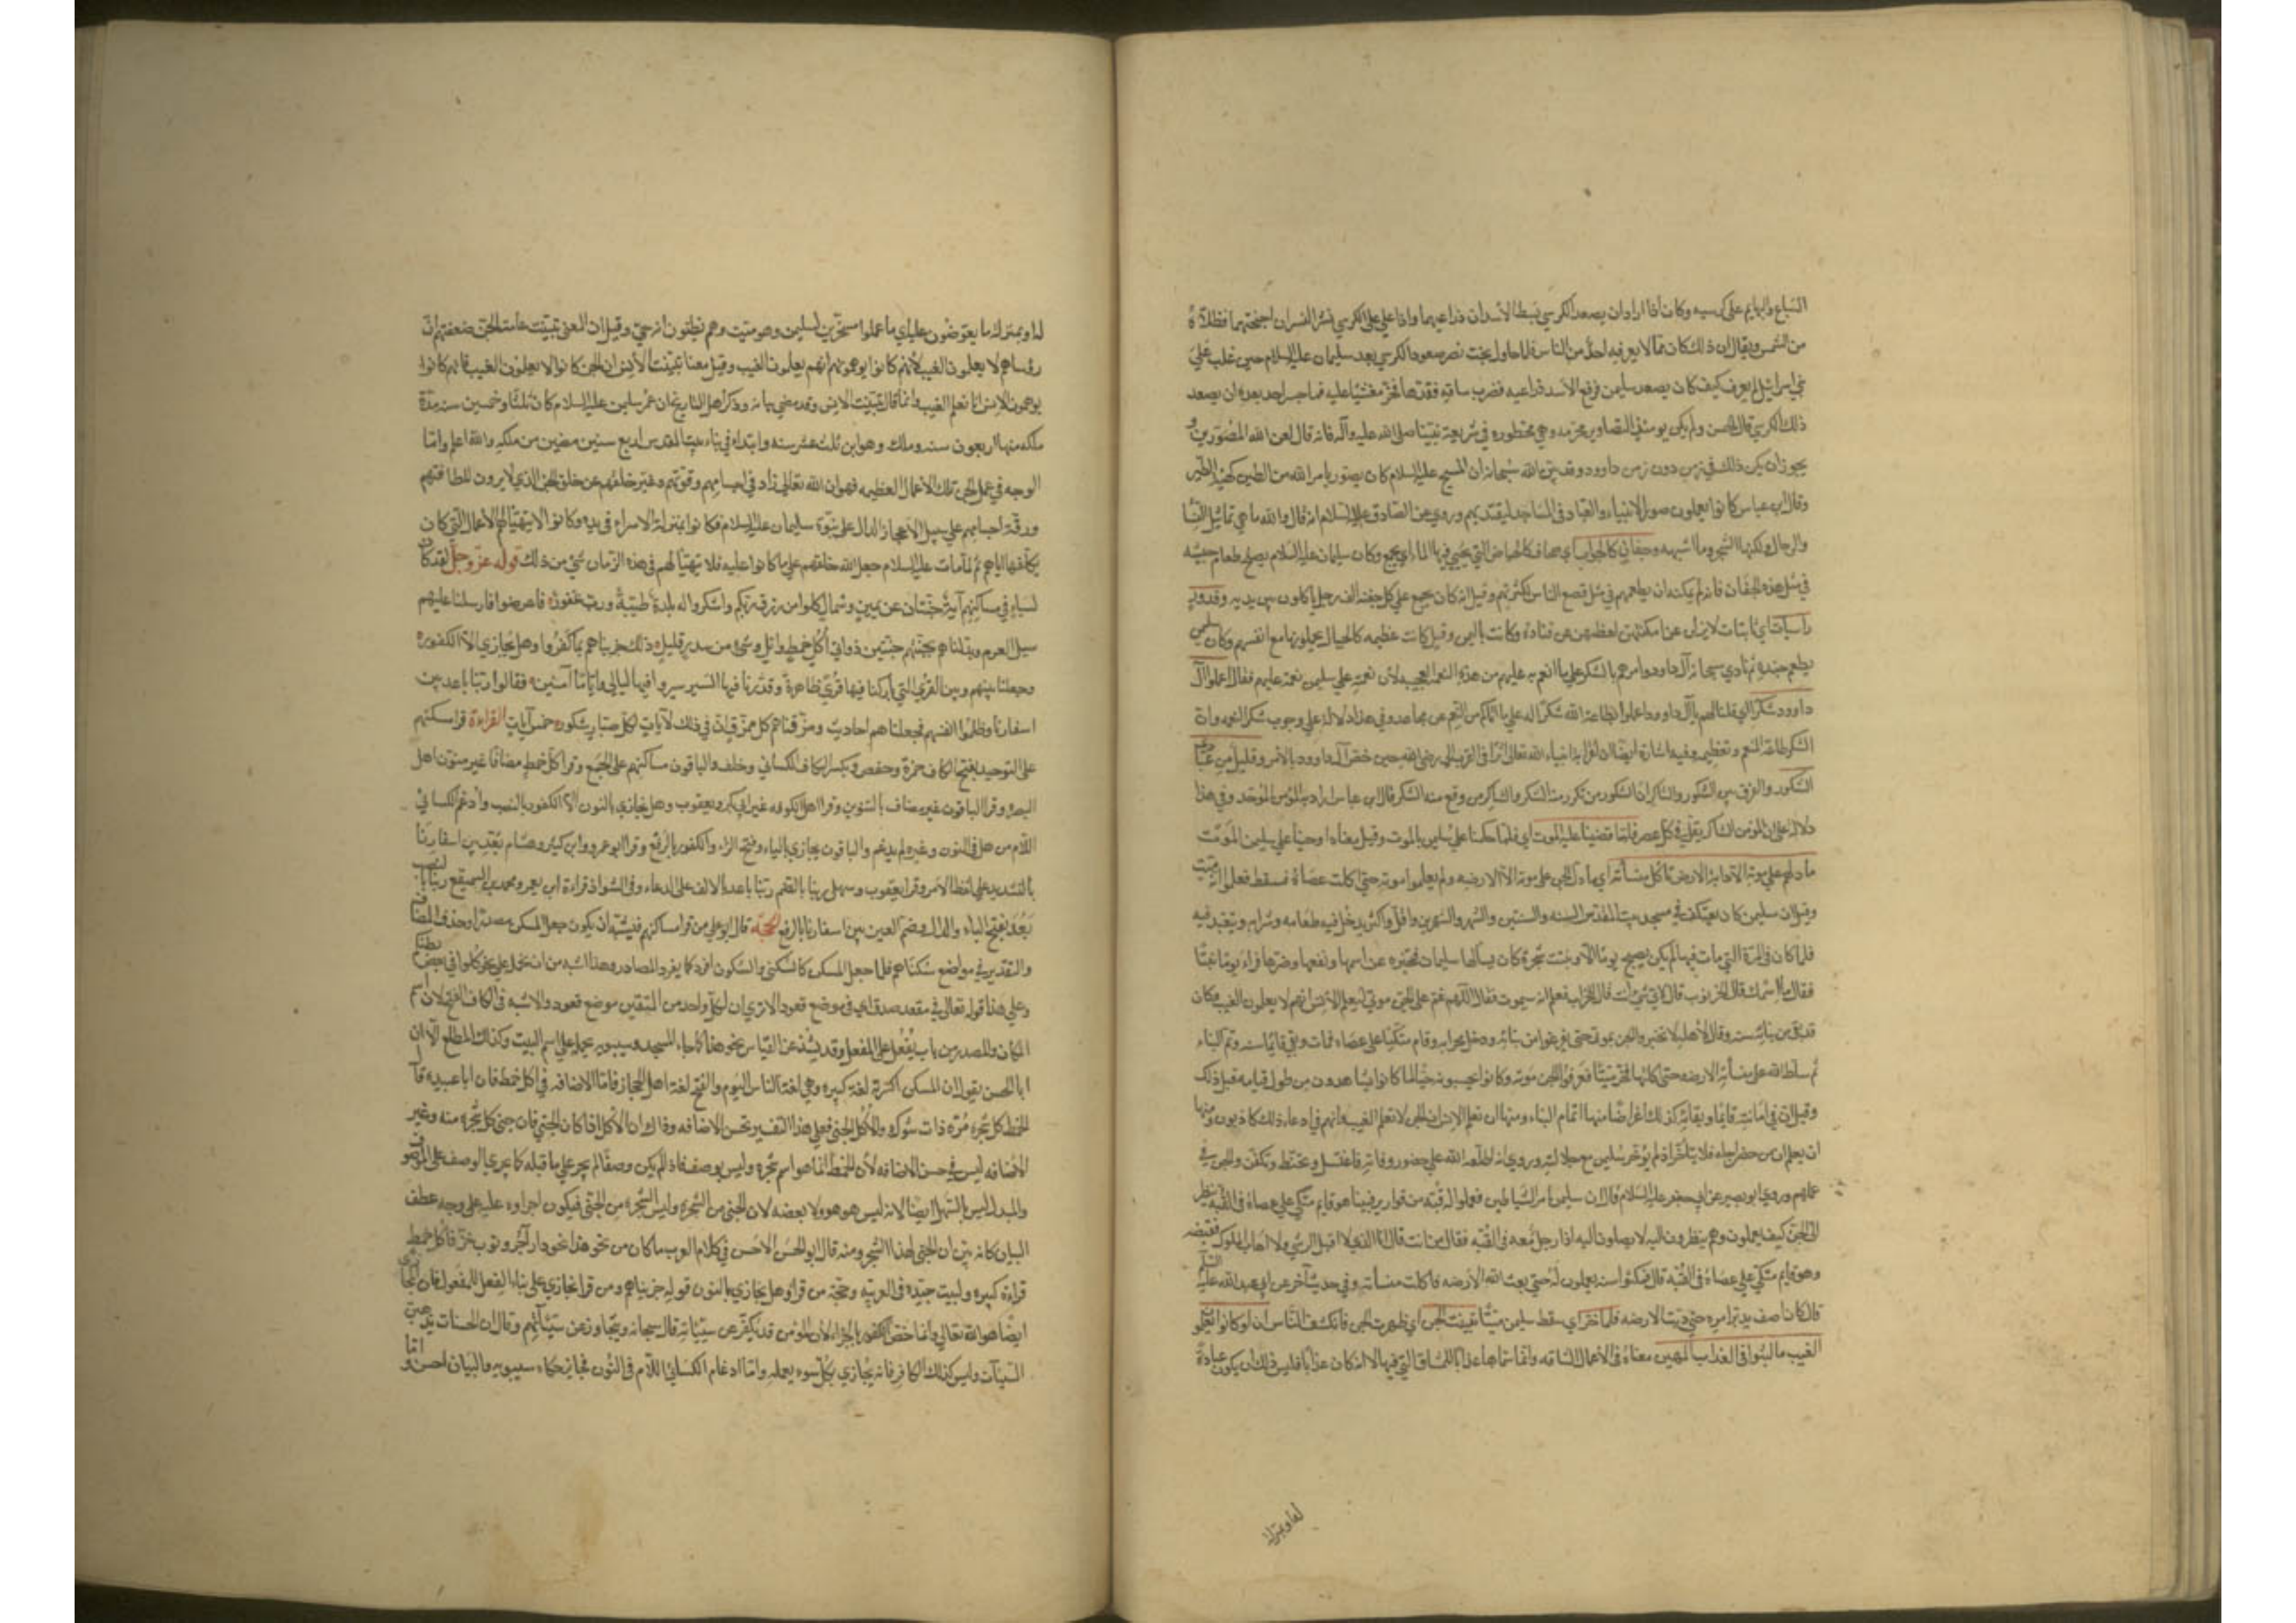 السباع والبهايم على كرسيه وكان اذا اراد ان يصعد الكرسي بسط الأسدان ذراعيهما واذا علي على الكرسي نشر النسران اجنحتهما فظللاه
من الشمس ويقال ان ذلك كان مما لا يعرفه احد من الناس فلما حاول بخت نصر صعود الكرسي بعد سليمان عليه السلام حين غلب على
بني اسرائيل لم يعرف كيف كان يصعد سليمن فرفع الاسد ذراعيه فضرب ساقه فقدها فخر مغشيا عليه فما جسر احد بعده ان يصعد
ذلك الكرسي قال الحسن ولم يكن يومئذ التصاوير محرمه وهي محظوره في شريعة نبينا صلى الله عليه وآله فانه قال لعن الله المصورين و
يجوز ان يكن ذلك في زمن دون زمن داوود وقد بين الله سبحانه ان المسيح عليه السلام كان يصور بامر الله من الطين كهيئة الطير
وقال ابن عباس كانوا يعملون صور الانبياء والعباد في المساجد ليقتدي بهم وروي عن الصادق عليه السلام انه قال والله ما هي تماثيل النسا
والرجال ولكنها الشجر وما اشبهه وجفان كالجواب اي صحاف كالحياض التي يجبي فيها الماء اي يجمع وكان سليمان عليه السلام يصلح طعام جيشه
في مثل هذه الجفان فانه لم يمكنه ان يطعمهم في مثل قصع الناس لكثرتهم وقيل انه كان يجمع على كل جفنة الف رجل ياكلون بين يديه وقدور
راسيات اي ثابتات لا يزلن عن امكنتهن لعظمهن عن قتادة وكانت باليمن وقيل كانت عظيمه كالجبال يحملونها مع انفسهم وكان سليمن
يطعم جنده ثم نادي سبحانه آل داوود وامرهم بالشكر على ما انعم به عليهم من هذه النعمة العجيبه لأن نعمته على سليمن نعمة عليهم فقال اعملوا آل
داوود شكرا اي قلنا لهم يا آل داوود اعملوا بطاعة الله شكرا له على ما آتاكم من النعم عن مجاهد وفي هذا دلالة على وجوب شكر النعمه وان
الشكر طاعة المنعم وتعظيمه وفيه اشارة ايضا الى ان لقرابة انبياء الله تعالى اثرا في القرب الى رضي الله حين خص آل داوود بالامر وقليل من عبادي
الشكور والفرق بين الشكور والشاكر ان الشكور من تكرر منه الشكر والشاكر من وقع منه الشكر قال ابن عباس اراد به المؤمن الموحد وفي هذا
دلالة على ان المؤمن الشاكر يقل في كل عصر فلما قضينا عليه الموت اي فلما حكمنا على سليمن بالموت وقيل معناه اوجبنا على سليمن الموت
ما دلهم على موته الا دابة الارض تاكل منسأته اي ما دل الجن على موته الا الارضه ولم يعلموا موته حتى اكلت عصاه فسقط فعلموا انه ميت
وقيل ان سليمن كان يعتكف في مسجد بيت المقدس السنه والسنتين والشهر والشهرين واقل واكثر يدخل فيه طعامه وشرابه ويتعبد فيه
فلما كان في المرة التي مات فيها لم يكن يصبح يوما الا وتنبت شجرة كان يسألها سليمان فتخبره عن اسمها ونفعها وضرها فراي يوما نبتا
فقال ما اسمك قال الخرنوب قال لاي شيء انت قال للخراب فعلم انه سيموت فقال اللهم غم على الجن موتي ليعلم الانس انهم لا يعلمون الغيب وكان
قد بقي من بنائه سنه وقال لأهله لا تخبروا الجن بموتي حتى يفرغوا من بنائه ودخل محرابه وقام متكيا على عصاه فمات وبقي قايما سنه وتم البناء
ثم سلط الله على منسأته الارضه حتى اكلتها فخر ميتا فعرف الجن موته وكانوا يحسبونه حيا لما كانوا يشاهدون من طول قيامه قبل ذلك
وقيل ان في اماتته قايما وبقايه كذلك اغراضا منها اتمام البناء ومنها ان تعلم الانس ان الجن لا تعلم الغيب وانهم في ادعاء ذلك كاذبون ومنها
ان يعلم ان من حضر اجله فلا يتأخر اذ لم يؤخر سليمن مع جلالته وروي انه اطلعه الله على حضور وفاته فاغتسل وتحنط وتكفن والجن في
عملهم وروي ابو بصير عن ابي جعفر عليه السلام قال ان سليمن امر الشياطين فعملوا له قبه من قوارير فبينا هو قايم متكي على عصاه في القبة ينظر
الى الجن كيف يعملون وهم ينظرون اليه لا يصلون اليه اذا رجل معه في القبه فقال من انت قال انا الذي لا اقبل الرشي ولا اهاب الملوك فقبضه
وهو قايم متكي على عصاه في القبه قال فمكثوا سنه يعملون له حتى بعث الله الأرضه فاكلت منسأته وفي حديث آخر عن ابي عبد الله عليه السلم
قال كان آصف يدبر امره حتى دبت الارضه فلما خر اي سقط سليمن ميتا تبينت الجن اي ظهرت الجن فانكشف للناس ان لو كانوا يعلمون
الغيب ما لبثوا في العذاب المهين معناه في الاعمال الشاقه وانما سماها عذابا للمشاق التي فيها لا انه كان عذابا فليس ذلك ان يكون عبادة
لها وبمنزلة
لها وبمنزلة ما يعوضون عليه اي ما عملوا مسخرين لسليمن وهو ميت وهم يظنون انه حي وقيل ان المعني تبينت عامة الجن ضعفتهم ان
رؤساهم لا يعلمون الغيب لأنهم كانوا يوهمونهم انهم يعلمون الغيب وقيل معناه تبينت الأنس ان الجن كانوا لا يعلمون الغيب فانهم كانوا
يوهمون الانس انا نعلم الغيب وانما قال تبينت الانس وقد مضي بيانه وذكر اهل التاريخ ان عمر سليمن عليه السلام كان ثلثا وخمسين سنه مدة
ملكه منها اربعون سنه وملك وهو ابن ثلث عشر سنه وابتداء في بناء بيت المقدس لاربع سنين مضين من ملكه والله اعلم واما
الوجه في عمل الجن تلك الأعمال العظيمه فهو ان الله تعالى زاد في اجسامهم وقوتهم وغير خلقهم عن خلق الجن الذي لا يرون للطافتهم
ورقة اجسامهم على سبيل الأعجاز الدال على نبوة سليمان عليه السلام فكانوا بمنزلة الاسراء في يده وكانوا لا يتهيأ لهم الأعمال التي كان
يكلفها اياهم ثم لما مات عليه السلام جعل الله خلقهم على ما كانوا عليه فلا يتهيأ لهم في هذه الزمان شيء من ذلك قوله عز وجل لقد كان
لسباء في مساكنهم آية جنتان عن يمين وشمال كلوا من رزق ربكم واشكروا له بلدة طيبة ورب غفور فاعرضوا فارسلنا عليهم
سيل العرم وبدلناهم بجنتيهم جنتين ذواتي اكل خمط واثل وشيء من سدر قليل ذلك جزيناهم بما كفروا وهل يجازي الا الكفور
وجعلنا بينهم وبين القرى التي باركنا فيها قرى ظاهرة وقدرنا فيها السير سيروا فيها ليالي واياما آمنين فقالوا ربنا باعد بين
اسفارنا وظلموا انفسهم فجعلناهم احاديث ومزقناهم كل ممزق ان في ذلك لآيات لكل صبار شكور خمس آيات القراءة قرا مسكنهم
على التوحيد بفتح الكاف حمزة وحفص وبكسر الكاف الكسائي وخلف والباقون مساكنهم على الجمع وقرا اكل خمط مضافا غير منون اهل
البصره وقرا الباقون غير مضاف بالتنوين وقرا اهل الكوفه غير ابي بكر ويعقوب وهل نجازي بالنون الا الكفور بالنصب وأدغم الكسائي
اللام من هل في النون وغيره لم يدغم والباقون يجازي بالياء وفتح الزاء والكفور بالرفع وقرا ابو عمرو وابن كثير وهشام بعد بين اسفارنا
بالتشديد على لفظ الامر وقرا يعقوب وسهل ربنا بالضم ربنا باعد بالالف على الدعاء وفي الشواذ قراءة ابن يعمر ومحمد بن السميقع ربنا بالنصب
بعد بفتح الباء والدال وضم العين بين اسفارنا بالرفع الحجة قال ابو علي من قرا مساكنهم فيشبه ان يكون جعل المسكن مصدرا وحذف المضاف
والتقدير في مواضع سكناهم فلما جعل المسكن كالسكني والسكون افرد كما يفرد المصادر وهذا اشبه من ان تحمل على نحو كلوا في بعض بطنكم
وعلى هذا قوله تعالى في مقعد صدق اي في موضع قعود الا تري ان لكل واحد من المتقين موضع قعود والاشبه في الكاف الفتح لان اسم
المكان والمصدر من باب يفعل على المفعل وقد يشذ عن القياس نحو هذا كما جاء المسجد وسيبويه يحمله على اسم البيت وكذلك المطلع الا ان
ابا الحسن يقول ان المسكن اكثر لغة كبيره وهي لغة الناس اليوم والفتح لغة اهل الحجاز فاما الاضافه في اكل خمط فان ابا عبيده قال
الخمط كل شجرة مرة ذات شوك والأكل الجني فعلى هذا التفسير تحسن الاضافه وذاك ان الأكل اذا كان الجني فان جني كل شجرة منه وغير
الاضافه ليس في حسن الاضافه لأن الخمط انما هو اسم شجرة وليس بوصف فاذا لم يكن وصفا لم يجر على ما قبله كما يجري الوصف على الموصوف
والبدل ليس بالسهل ايضا لانه ليس هو هو ولا بعضه لان الجني من الشجرة وليس الشجرة من الجني فيكون اجراوه عليه على وجه عطف
البيان كانه بين ان الجني لهذا الشجر ومنه قال ابو الحسن الاحسن في كلام العرب ما كان من نحو هذا نحو دار آجر وثوب خز فاكل خمط
قراءة كبيره وليست جيدة في العربيه وحجة من قرا وهل نجازي بالنون قوله جزيناهم ومن قرا يجازي على بناء الفعل للمفعول فان المجازي
ايضا هو الله تعالى وانما خص الكفور بالجزاء لان المؤمن قد يكفر عن سيئاته قال سبحانه ويتجاوز عن سيئاتهم وقال ان الحسنات يذهبن
السيئآت وليس كذلك الكافر فانه يجازي بكل سوء يعمله واما ادغام الكسائي اللام في النون فجايز حكاه سيبويه والبيان احسن واما